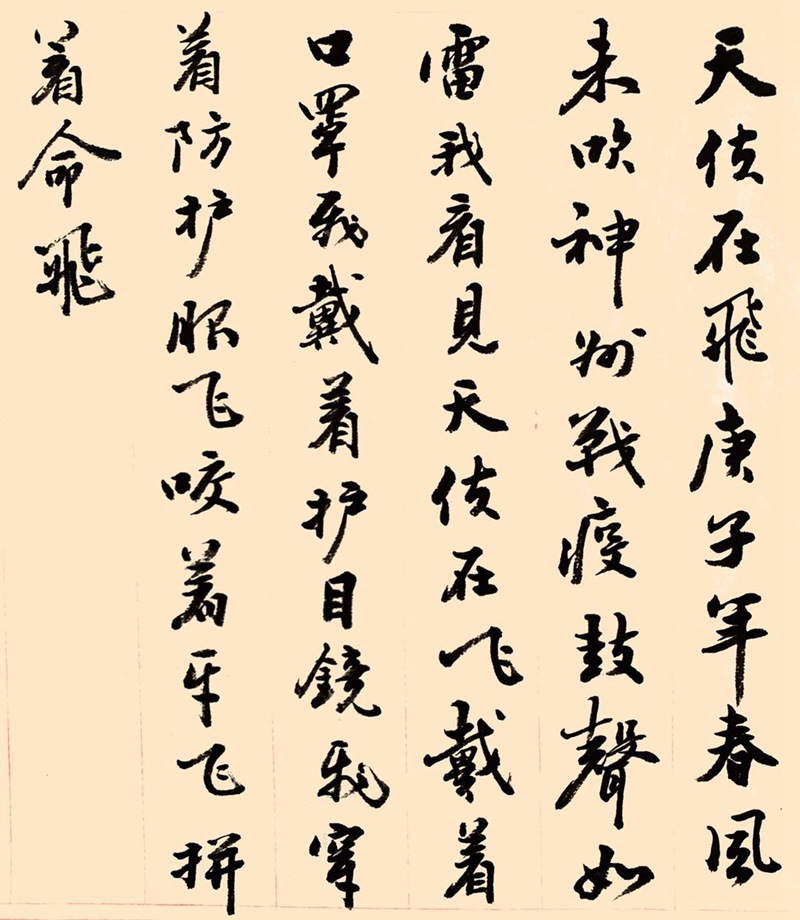 天使在飛庚子年春風
未吹神州戰疫鼓聲如
雷我看見天使在飞戴着
口罩飛戴着护目鏡飛穿
着防护服飞咬着牙飞拼
着命飛